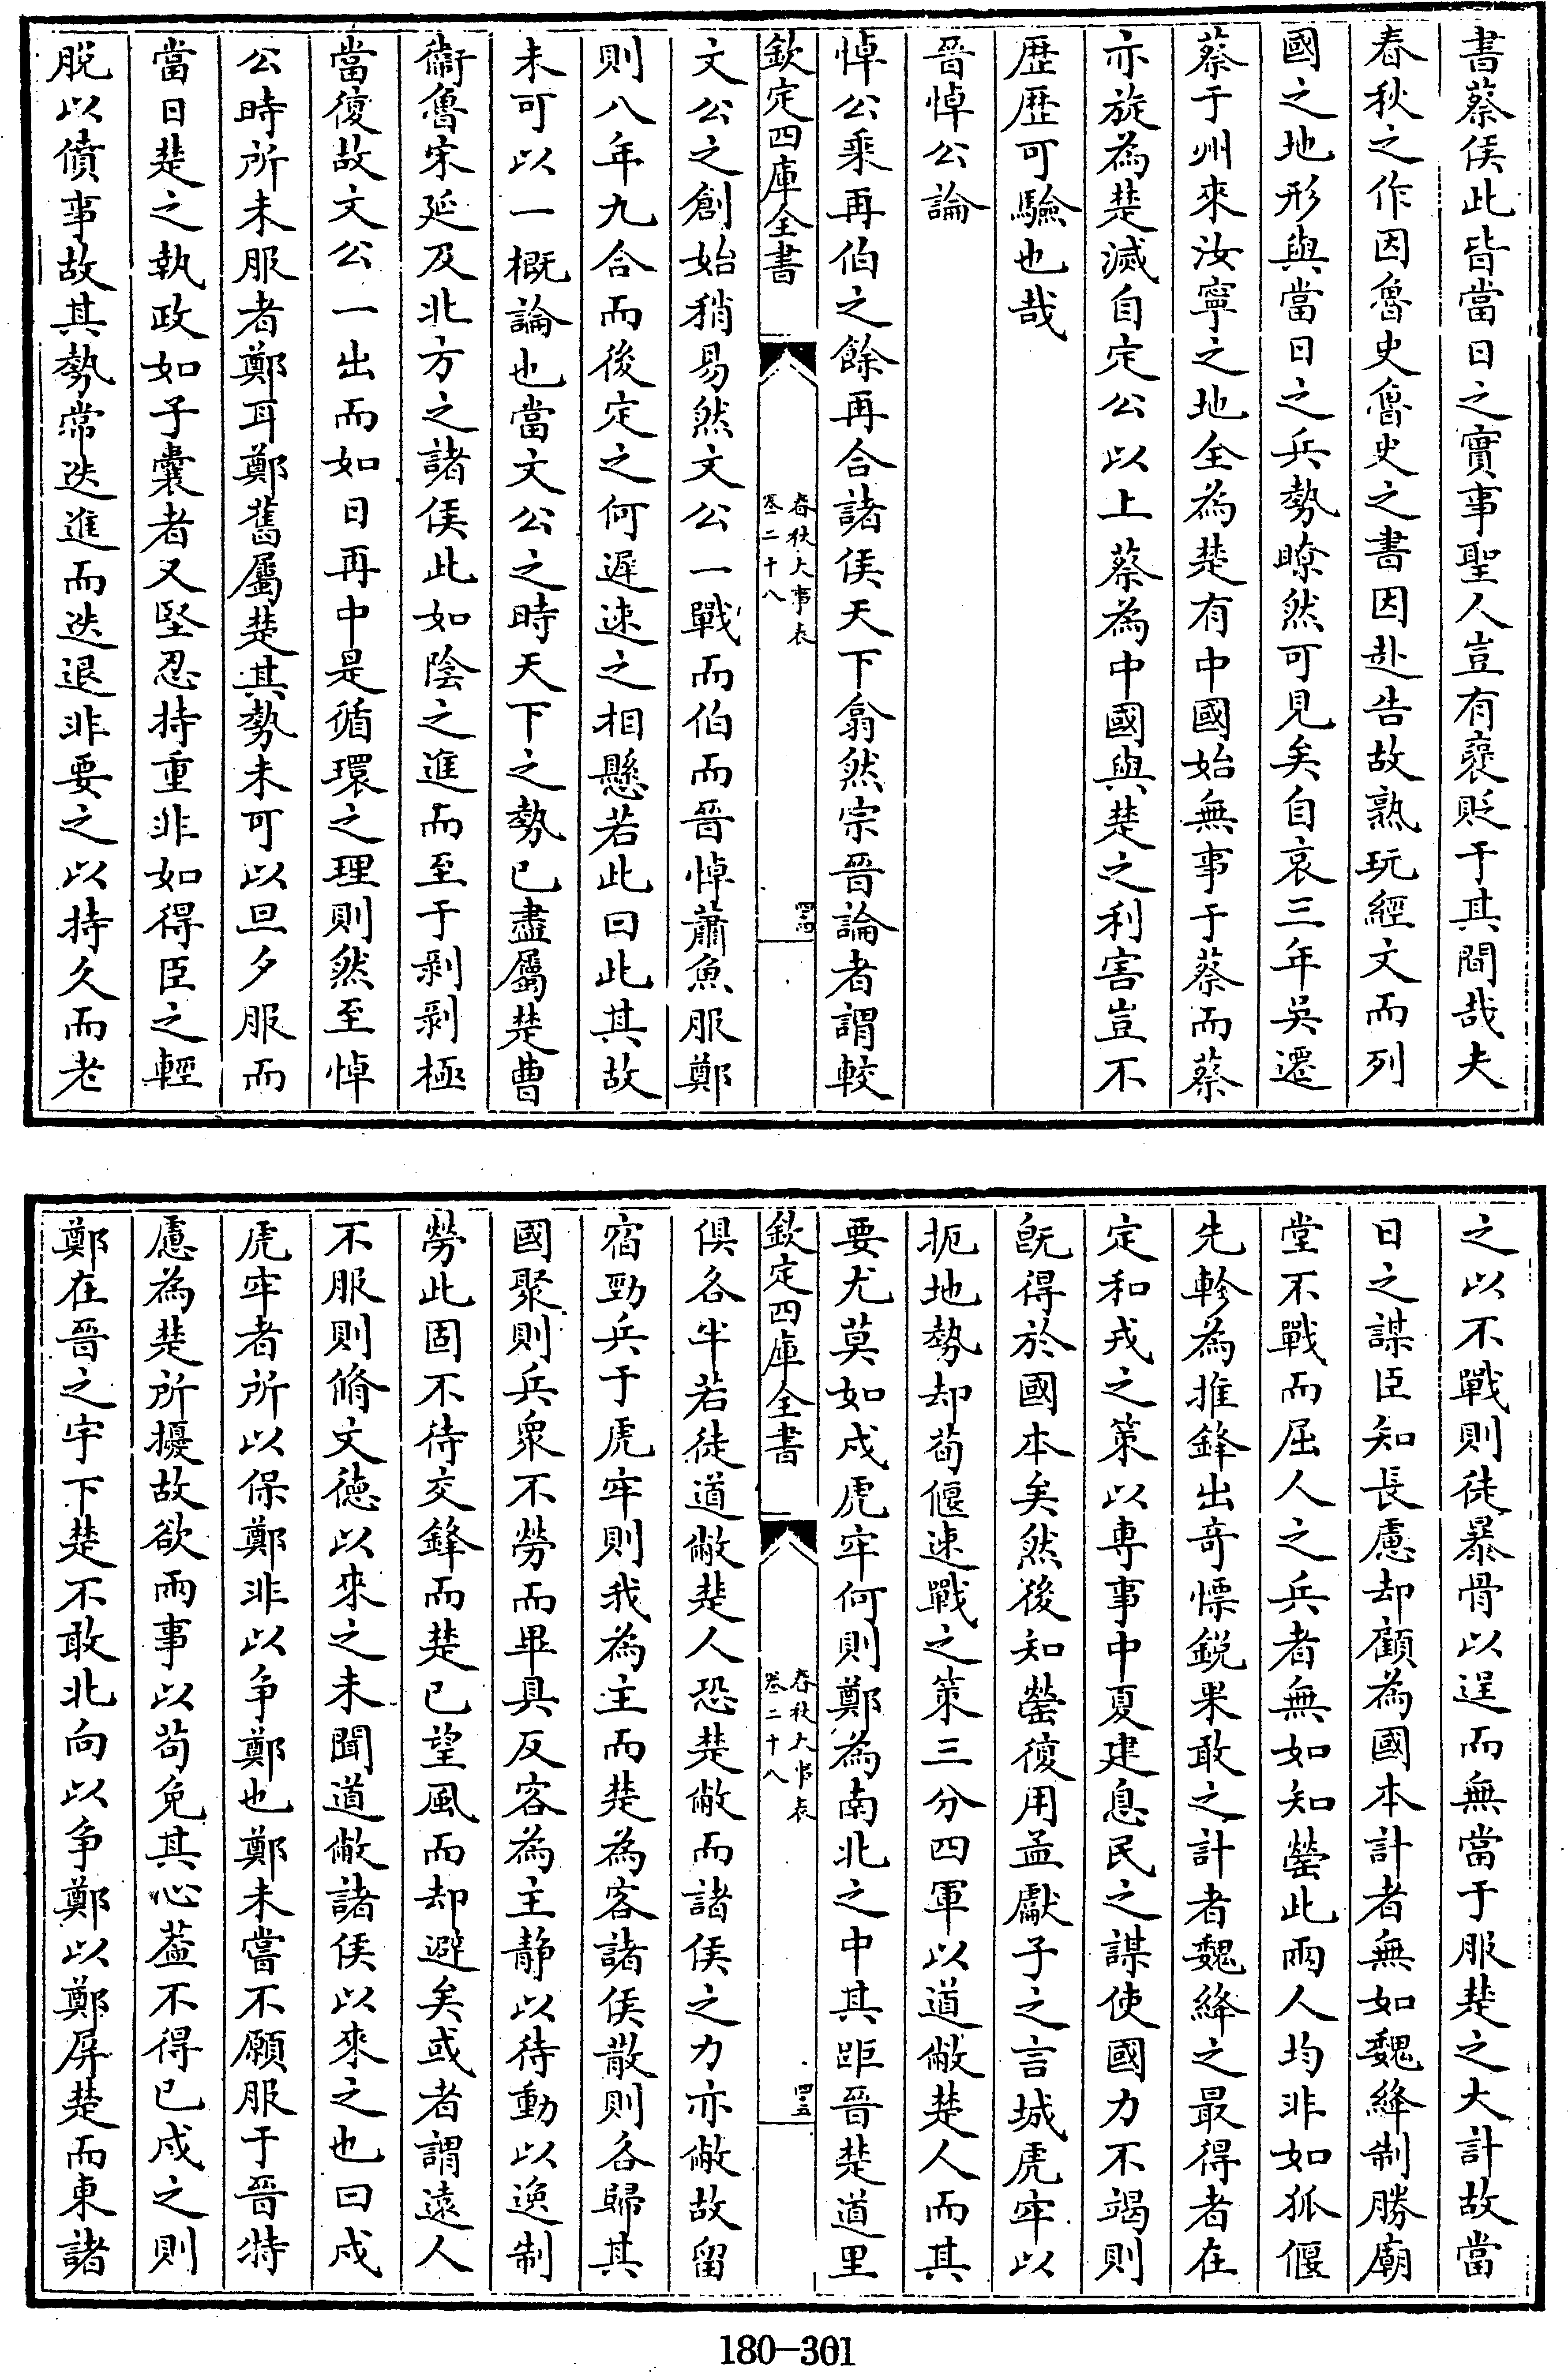 書蔡侯此皆當日之實事聖人豈有褒貶于其間哉夫
春秋之作因魯史魯史之書因赴告故熟玩經文而列
國之地形與當日之兵勢瞭然可見矣自哀三年吳遷
蔡于州來汝寧之地全為楚有中國始無事于蔡而蔡
亦旋為楚滅自定公以上蔡為中國與楚之利害豈不
歴歴可驗也哉
晉悼公論
悼公乘再伯之餘再合諸侯天下翕然宗晉論者謂較
欽定四庫全書
春秋大事表
卷二十八
四十四
文公之創始稍易然文公一戰而伯而晉悼蕭魚服鄭
則八年九合而後定之何遲速之相懸若此曰此其故
未可以一概論也當文公之時天下之勢已盡屬楚曹
衞魯宋延及北方之諸侯此如陰之進而至于剥剥極
當復故文公一出而如日再中是循環之理則然至悼
公時所未服者鄭耳鄭舊屬楚其勢未可以旦夕服而
當日楚之執政如子囊者又堅忍持重非如得臣之輕
脫以僨事故其勢常迭進而迭退非要之以持久而老
之以不戰則徒暴骨以逞而無當于服楚之大計故當
日之謀臣知長慮却顧為國本計者無如魏絳制勝廟
堂不戰而屈人之兵者無如知罃此兩人均非如狐偃
先軫為推鋒出奇慓鋭果敢之計者魏絳之最得者在
定和戎之策以専事中夏建息民之謀使國力不竭則
旣得於國本矣然後知罃復用孟獻子之言城虎牢以
扼地勢却荀偃速戰之策三分四軍以道敝楚人而其
要尤莫如戍虎牢何則鄭為南北之中其距晉楚道里
欽定四庫全書
春秋大事表
卷二十八
四十五
俱各半若徒道敝楚人恐楚敝而諸侯之力亦敝故留
宿勁兵于虎牢則我為主而楚為客諸侯散則各歸其
國聚則兵衆不勞而畢具反客為主静以待動以逸制
勞此固不待交鋒而楚已望風而却避矣或者謂遠人
不服則脩文德以來之未聞道敝諸侯以來之也曰戍
虎牢者所以保鄭非以争鄭也鄭未嘗不願服于晉特
慮為楚所擾故欲兩事以苟免其心葢不得已戍之則
鄭在晉之宇下楚不敢北向以争鄭以鄭屏楚而東諸
180-301